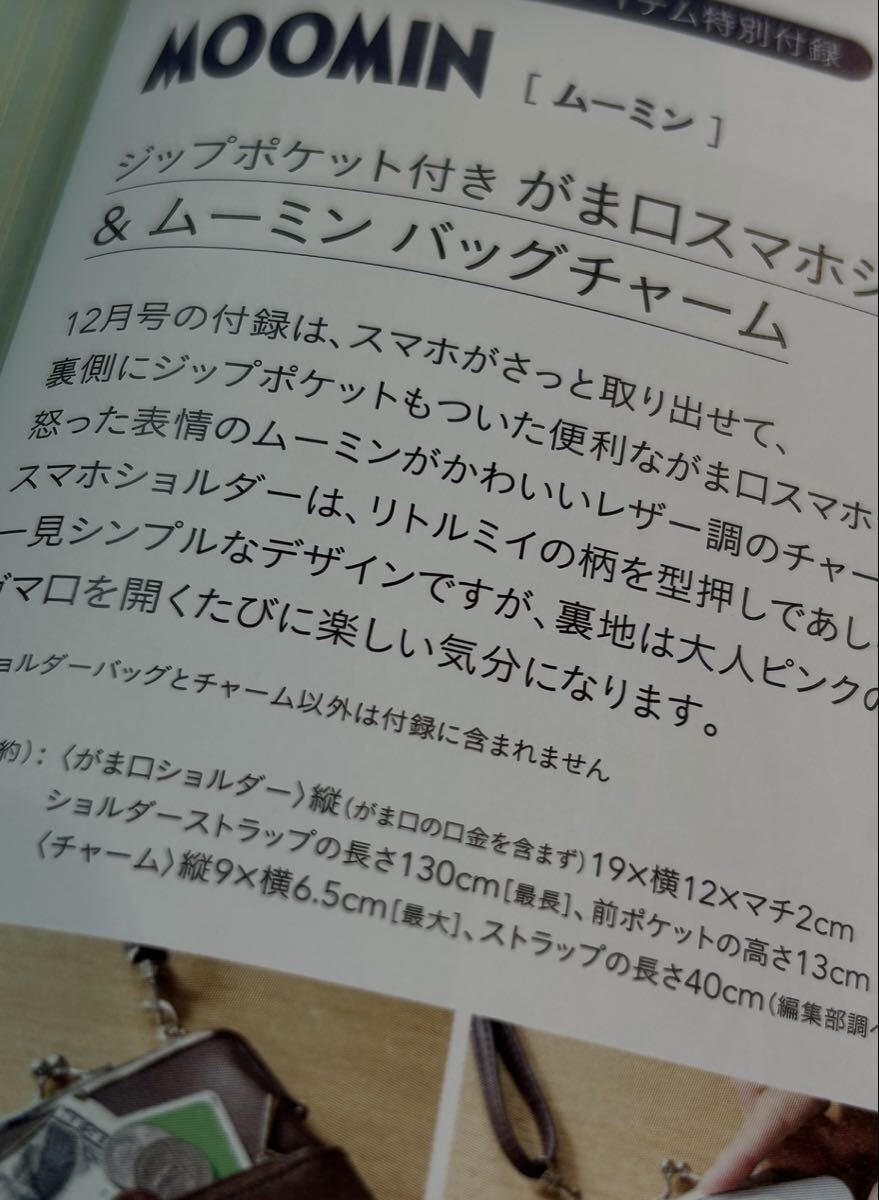 イテム特別付録
MOOMIN [ムーミン]
ジップポケット付き がま口スマホシ
& ムーミン バッグチャーム
12月号の付録は、スマホがさっと取り出せて、
裏側にジップポケットもついた便利ながま口スマホ
怒った表情のムーミンがかわいいレザー調のチャー
スマホショルダーは、リトルミイの柄を型押しであし
一見シンプルなデザインですが、裏地は大人ピンクの
ガマ口を開くたびに楽しい気分になります。
ョルダーバッグとチャーム以外は付録に含まれません
約):〈がま口ショルダー〉縦(がま口の口金を含まず)19×横12×マチ2cm
ショルダーストラップの長さ130cm[最長]、前ポケットの高さ13cm
〈チャーム〉縦9×横6.5cm[最大]、ストラップの長さ40cm(編集部調べ